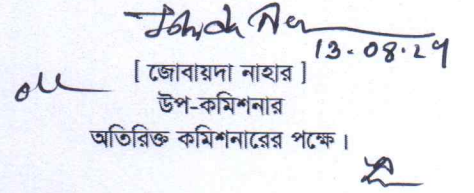 13.08.29
[ জোবায়দা নাহার ]
উপ-কমিশনার
অতিরিক্ত কমিশনারের পক্ষে।